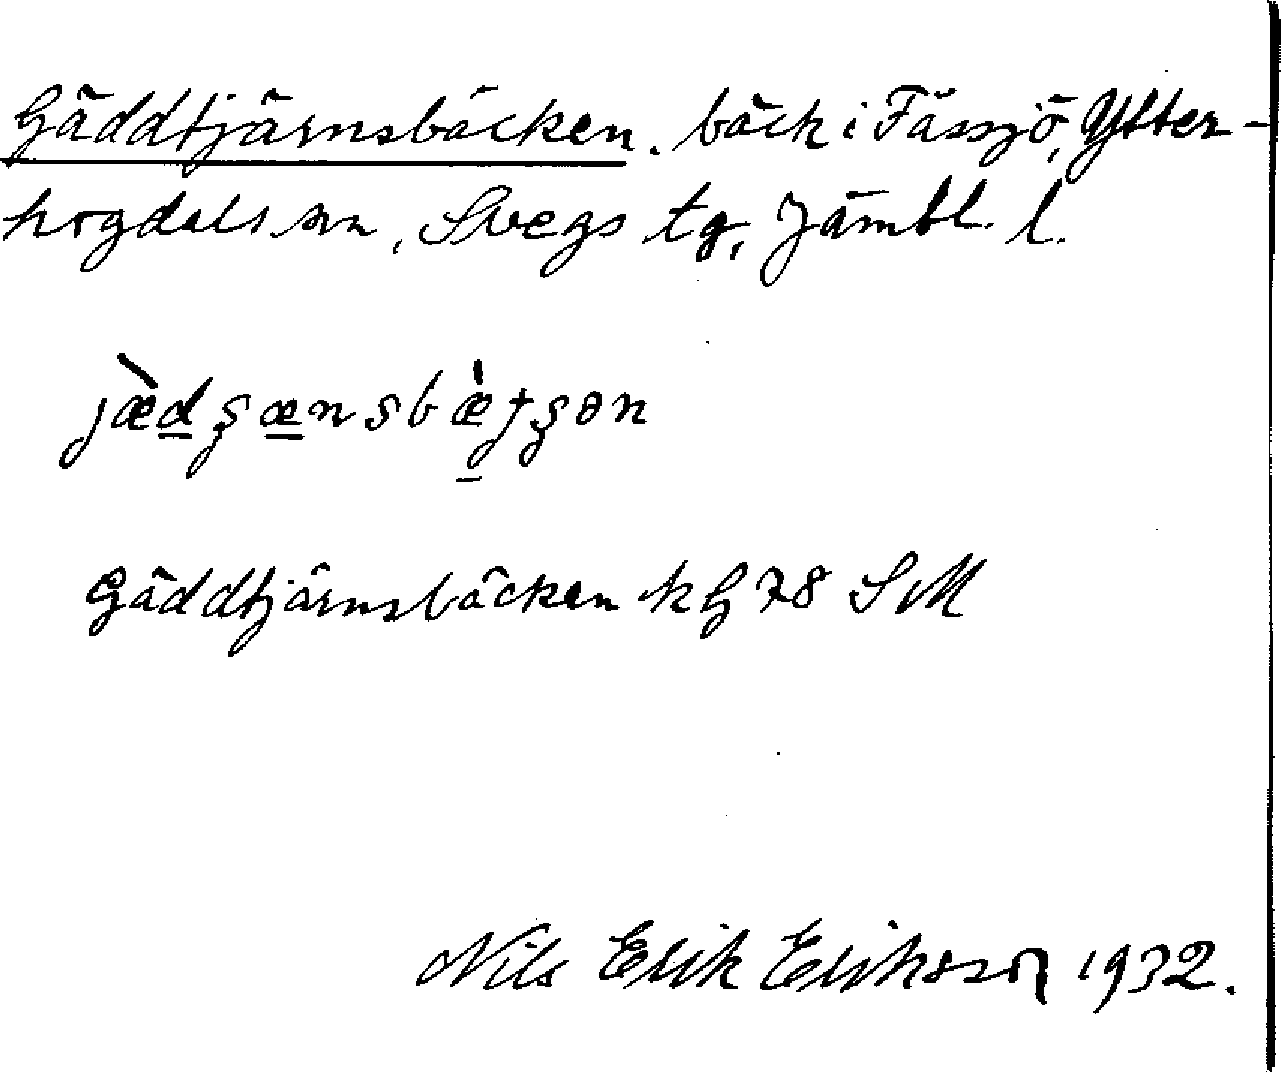 Gäddtjärnsbäcken. bäck i Fässjö, Ytter-
hogdals sn, Svegs tg, Jämtl. l.
Gäddtjärnsbäcken kG78 SM
Nils Erik Eriksson 1932.